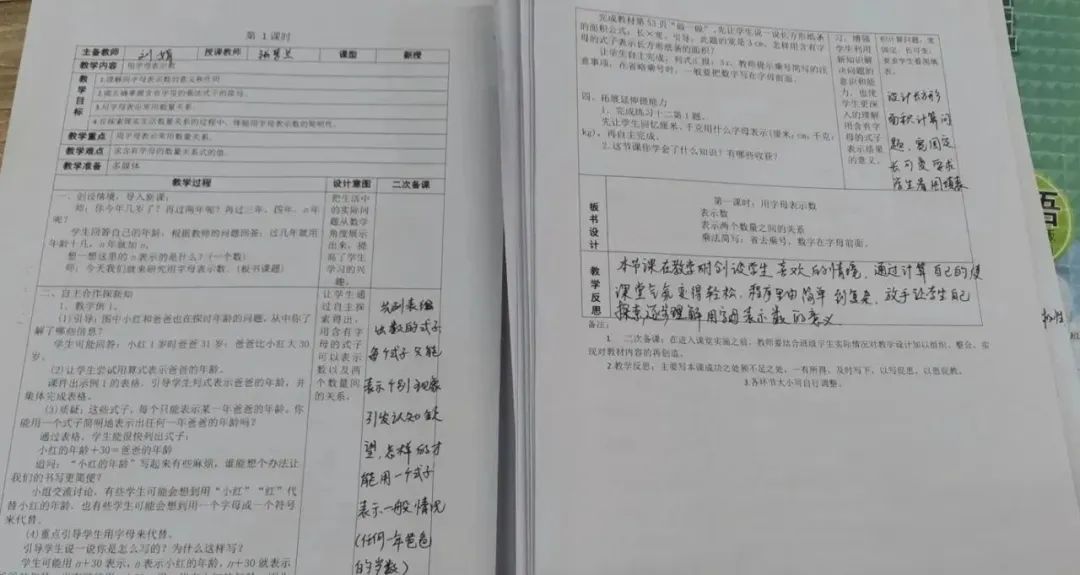 第 1 课时
主备教师 刘娟 授课教师 课型 新授
教学内容 用字母表示数
教学目标
1.理解用字母表示数的意义和作用
2.能正确掌握含有字母的乘法式子的简写。
3.用字母表示常用数量关系。
4.在探索现实生活数量关系的过程中,体验用字母表示数的简明性。
教学重点 用字母表示常用数量关系。
教学难点 求含有字母的数量关系式的值。
教学准备 多媒体
教学过程 设计意图 二次备课
一、创设情境,导入新课:
师:你今年几岁了?再过两年呢?再过三年、四年、n年
呢?
学生回答自己的年龄,根据教师的问题回答:过几年就用
年龄十几,n年就加n。
想一想这里的n表示的是什么?(一个数)
师:今天我们就来研究用字母表示数。(板书课题)
把生活中
的实际问
题从数学
角度展示
出来,提
高了学生
学习的兴
趣。
二、自主合作探新知
1、教学例1。
(1)引导:图中小红和爸爸也在探讨年龄的问题,从中你了
解了哪些信息?
学生可能回答:小红1岁时爸爸31岁;爸爸比小红大30
岁。
(2)让学生尝试用算式表示爸爸的年龄。
课件出示例1的表格,引导学生列式表示爸爸的年龄,并
集体完成表格。
(3)质疑:这些式子,每个只能表示某一年爸爸的年龄。你
能用一个式子简明地表示出任何一年爸爸的年龄吗?
通过表格,学生能很快列出式子:
小红的年龄+30=爸爸的年龄
追问:“小红的年龄”写起来有些麻烦,谁能想个办法让
我们的书写更简便?
小组交流讨论,有些学生可能会想到用“小红”“红”代
替小红的年龄,也有些学生可能会想到用一个字母或一个符号
来代替。
(4)重点引导学生用字母来代替。
引导学生说一说你是怎么写的?为什么这样写?
学生可能用n+30表示,n表示小红的年龄,n+30就表示
让学生通
过自主探
索得出,
用含有字
母的式子
可以表示
数以及两
个数量间
的关系。
发现表格
出数的式子
每个式子只能
表示个别现象
引发认知欲
望,怎样的才
能用一个式子
表示一般情况
(任何一年爸爸
的岁数)
完成教材第53页“做一做”,先让学生说一说长方形纸条
的面积公式:长×宽,引导:此题的宽是3 cm,怎样用含有字
母的式子表示长方形纸条的面积?
让学生自主完成,列式汇报:3x,教师提示乘号简写的注
意事项,在省略乘号时,一般要把数字写在字母前面。
四、拓展延伸提能力
1、完成练习十二第1题。
先让学生回忆厘米、千克用什么字母表示(厘米:cm,千克:
kg),再自主完成。
2.这节课你学会了什么知识?有哪些收获?
习,增强
学生利用
新知识解
决问题的
意识和能
力,也使
学生更深
入的理解
用含有字
母的式子
表示结果
的意义。
积计算问题,宽
固定,长可变,
要求学生看图填
表。
设计长方形
面积计算问
题,宽固定
长可变要求
学生看图填表
板书设计
第一课时:用字母表示数
表示数
表示两个数量之间的关系
乘法简写:省去乘号,数字在字母前面。
教学反思
本节课在教学时创设学生喜欢的情境,通过计算自己的使
课堂气氛变得轻松,程序由简单到复杂,放手让学生自己
探索,逐步理解用字母表示数的意义
备注:
1 二次备课:在进入课堂实施之前,教师要结合班级学生实际情况对教学设计加以组织、整合,实
现对教材内容的再创造。
2.教学反思:主要写本课成功之处和不足之处,一有所得,及时写下,以写促思,以思促教。
3.各环节大小可自行调整。